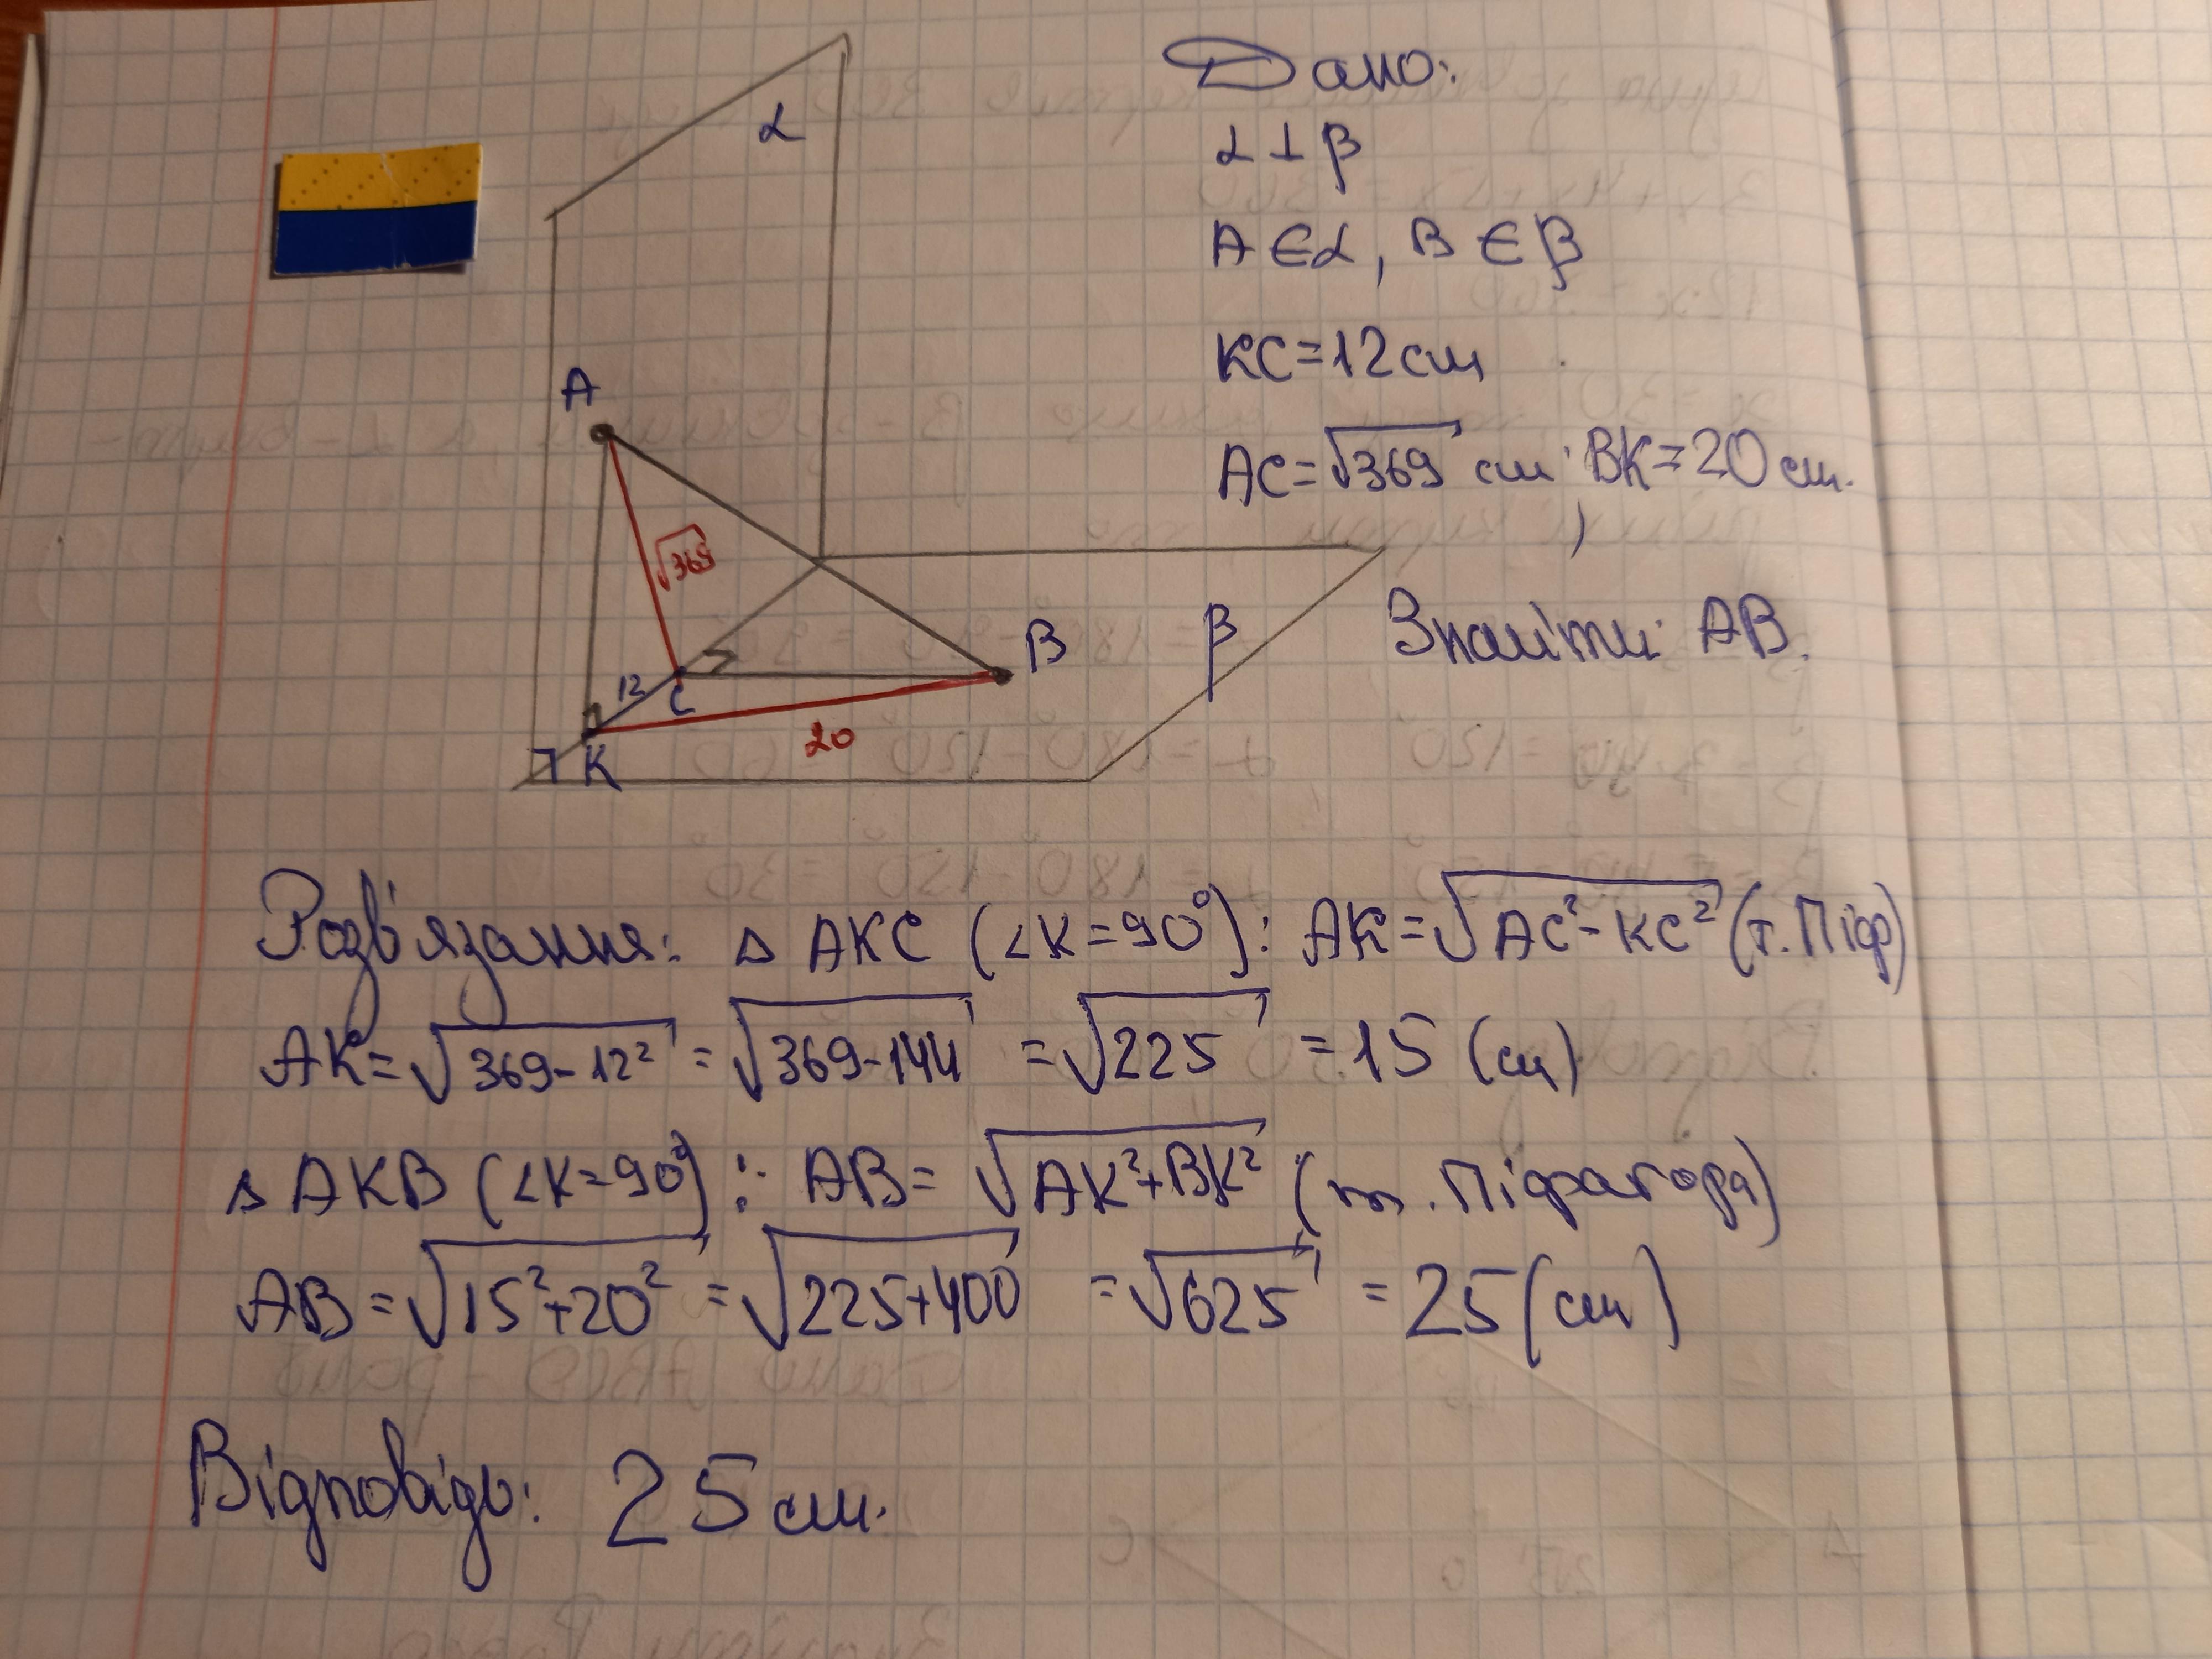 α
Дано:
α ⊥ β
A ∈ α, B ∈ β
KC = 12 см
AC = √369 см, BK = 20 см.
Знайти: AB.
A
√369
B
β
12
C
20
K
Розв'язання: △ AKC (∠K = 90°): AK = √AC² - KC² (т. Піф)
AK = √369 - 12² = √369 - 144 = √225 = 15 (см)
△ AKB (∠K = 90°): AB = √AK² + BK² (т. Піфагора)
AB = √15² + 20² = √225 + 400 = √625 = 25 (см)
Відповідь: 25 см.